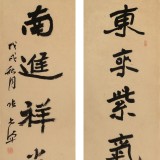 東來紫氣
南進祥
戊戌秋月